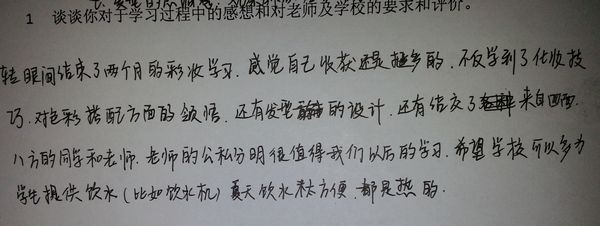 1 谈谈你对于学习过程中的感想和对老师及学校的要求和评价。
转眼间结束了两个月的彩妆学习.感觉自己收获还是挺多的.不仅学到了化妆技
巧.对色彩搭配方面的领悟.还有发型的设计.还有结交了来自四面
八方的同学和老师.老师的公私分明很值得我们以后的学习.希望学校可以多为
学生提供饮水(比如饮水机)夏天饮水不太方便.都是热的.